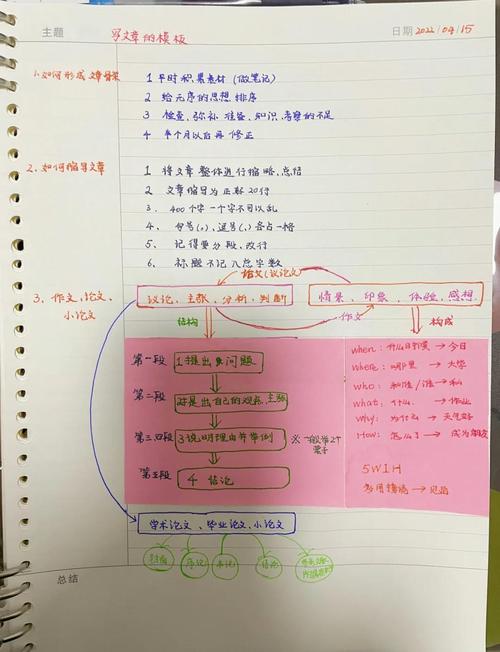 主题
写文章的模板
日期 2022/04/15
1.如何形成文章骨架
1 平时积累素材 (做笔记)
2 给无序的思想排序
3 检查、弥补准备、知识、考察的不足
4 半个月以后再修正
2. 如何缩写文章
1. 将文章整体进行缩略,总结
2. 文章缩写为正标20行
3. 400个字一个字不可以乱
4. 句号(。)、逗号(、)各占一格
5. 记得要分段,改行
6. 标题不记入总字数
论文(议论文)
3. 作文、论文、
小论文
议论、主张、分析、判断
情景、印象、体验、感想
作文
结构
构成
第一段
1 提出
问题
第二段
提出自己的观点、主张
第三四段
3 说明理由并举例
※ 一般举2个
例子
第五段
4 结论
when: 什么时候 → 今日
where: 哪里 → 大学
who: 和谁/谁 → 私
what: 什么 → 作业
why: 为什么 → 天气好
How: 怎么了 → 成为朋友
5W1H
多用情语
学术论文、毕业论文、小论文
序论
本论
结论
总结